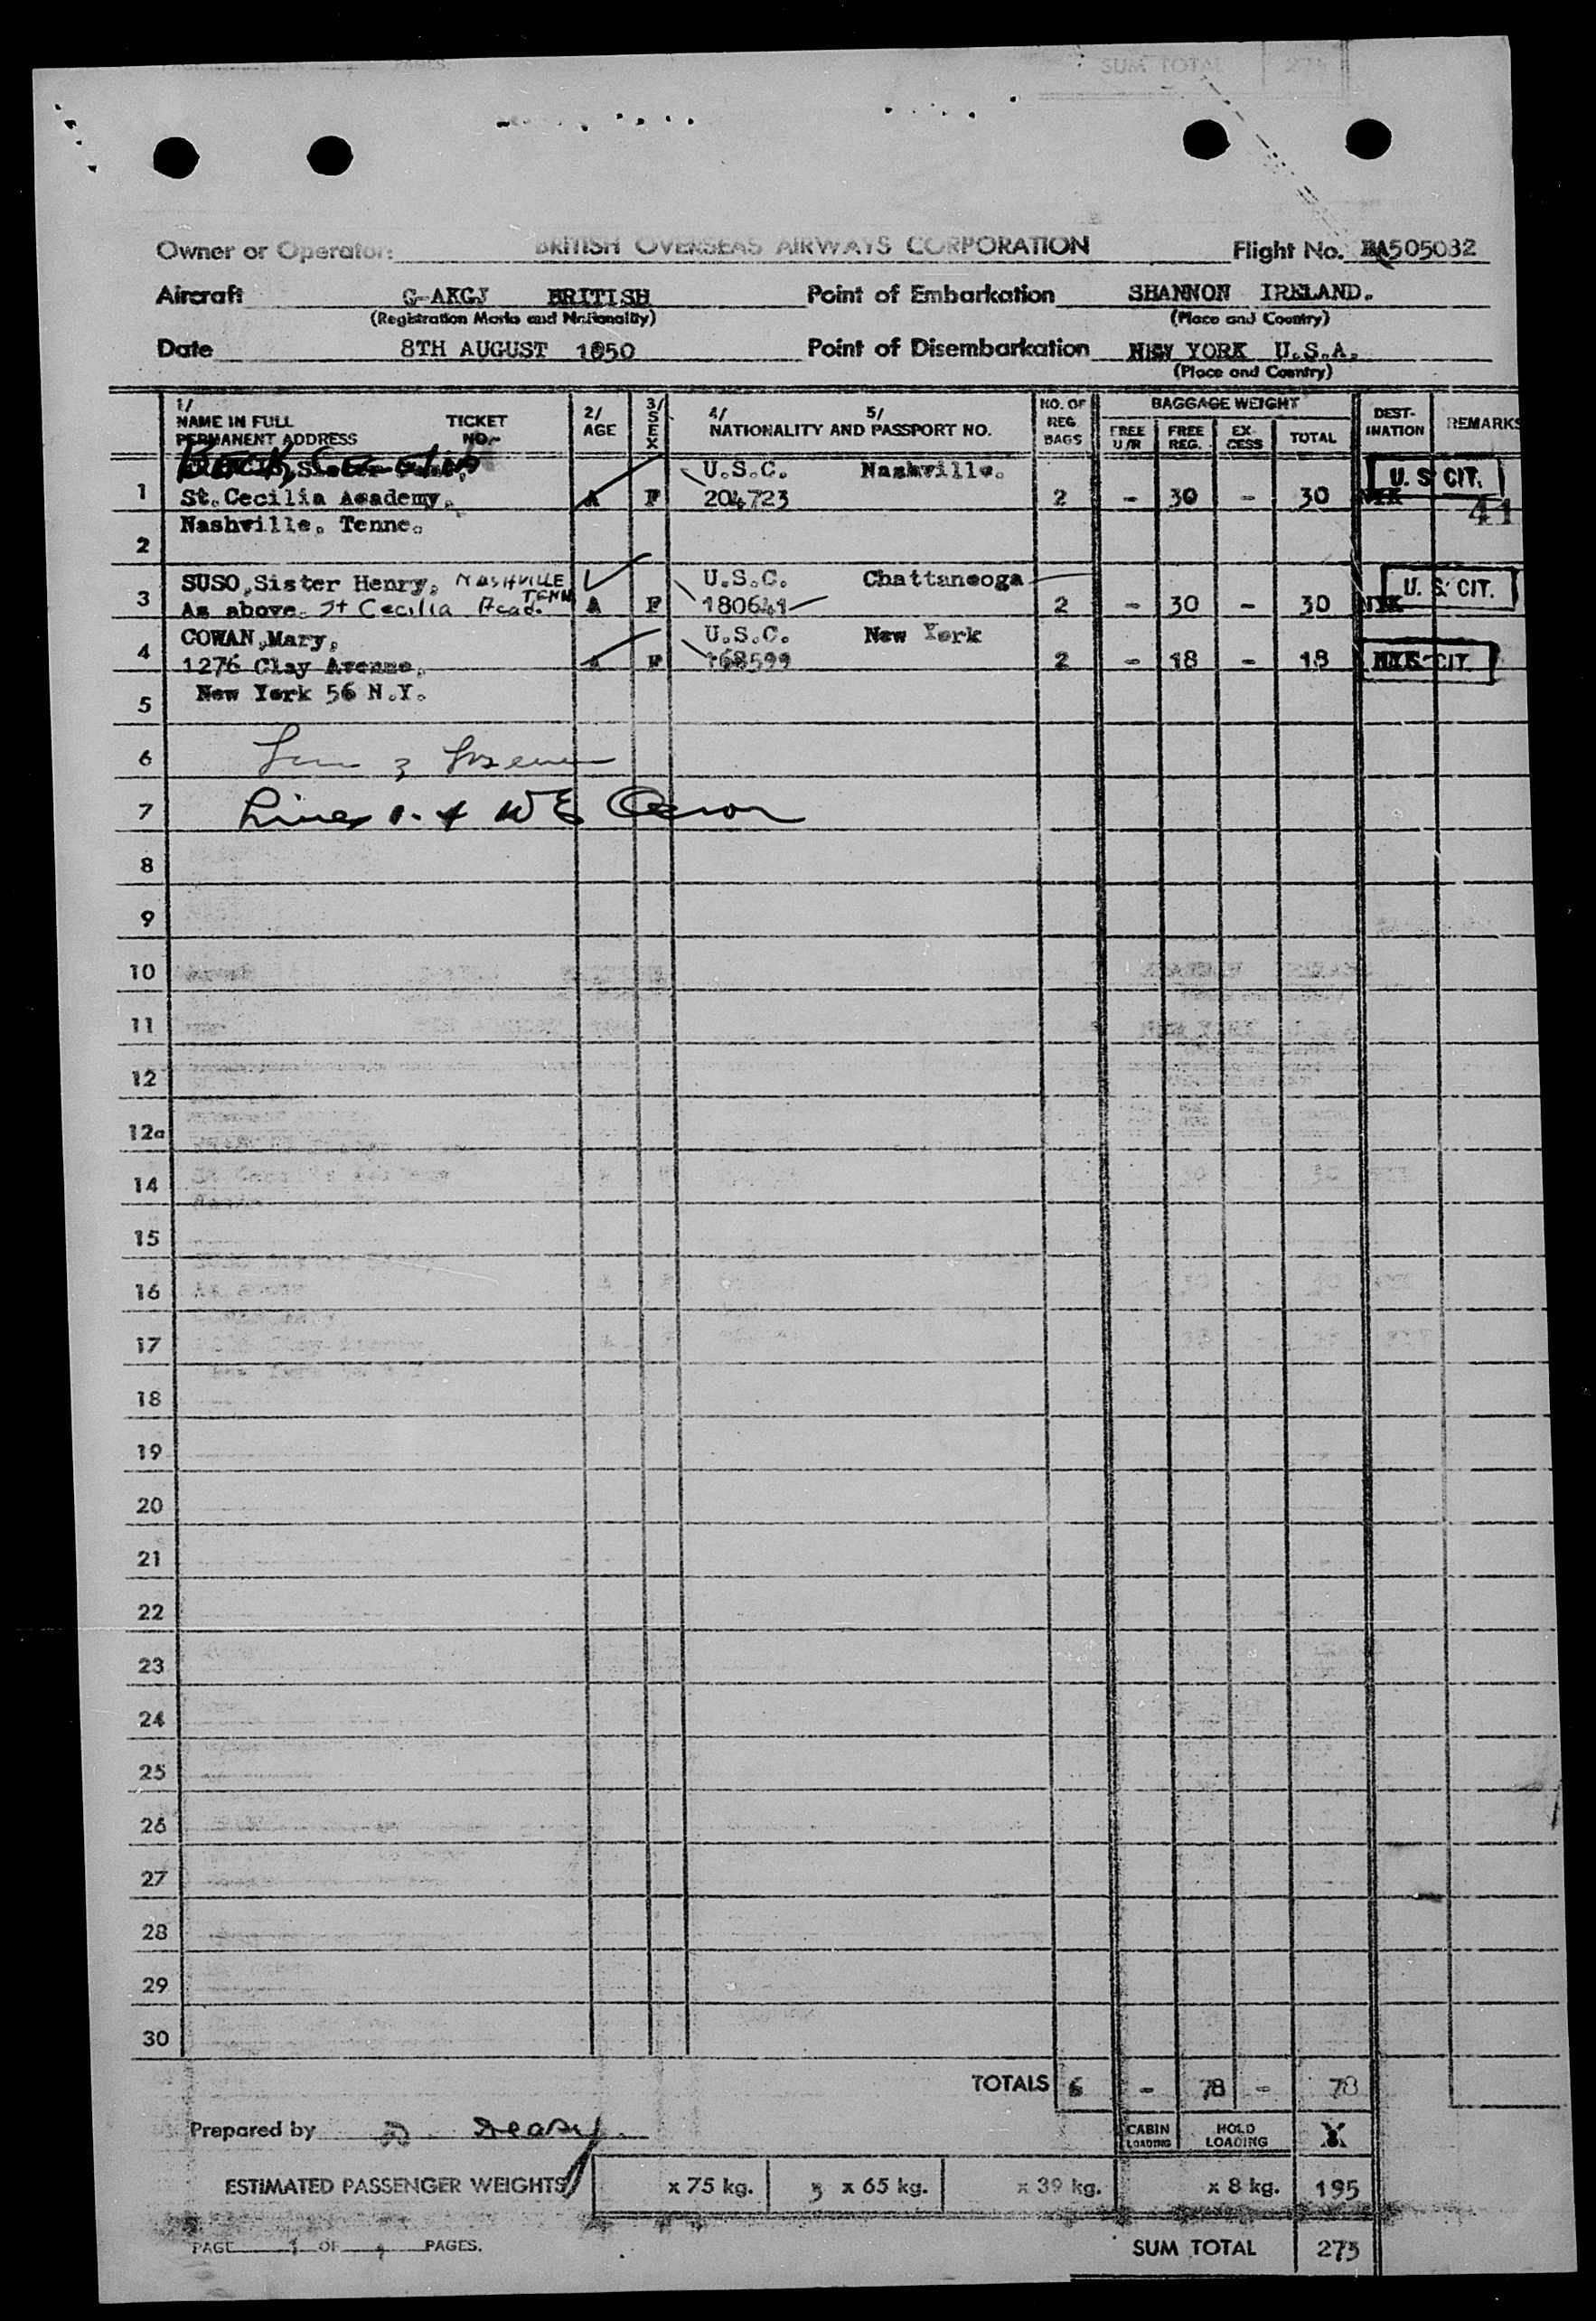 SUM TOTAL 273
Owner or Operator: BRITISH OVERSEAS AIRWAYS CORPORATION Flight No. BA505032
Aircraft G-AKGJ BRITISH Point of Embarkation SHANNON IRELAND.
(Registration Marks and Nationality) (Place and Country)
Date 8TH AUGUST 1950 Point of Disembarkation NEW YORK U.S.A.
(Place and Country)
1/ NAME IN FULL PERMANENT ADDRESS TICKET NO. 2/ AGE 3/ SEX 4/ 5/ NATIONALITY AND PASSPORT NO. NO. OF REG BAGS BAGGAGE WEIGHT FREE U/R FREE REG. EX-CESS TOTAL DEST-INATION REMARKS
Sister U.S.C. Nashville. U. S. CIT.
1 St. Cecilia Academy, A F 204723 2 - 30 - 30 NYK 41
Nashville. Tenne.
2
SUSO, Sister Henry, NASHVILLE TENN U.S.C. Chattaneoga U. S. CIT.
3 As above. St Cecilia Acad. A F 180641 2 - 30 - 30 NYK
COWAN, Mary, U.S.C. New York
4 1276 Clay Avenue, A F 168599 2 - 18 - 18 NYK U.S. CIT.
New York 56 N.Y.
5
6
7 Lines 1. 4
8
9
10
11
12
12a
14
15
16
17
18
19
20
21
22
23
24
25
26
27
28
29
30
TOTALS 6 - 78 - 78
Prepared by CABIN LOADING HOLD LOADING
ESTIMATED PASSENGER WEIGHTS x 75 kg. 3 x 65 kg. x 39 kg. x 8 kg. 195
PAGE 1 OF 1 PAGES. SUM TOTAL 273